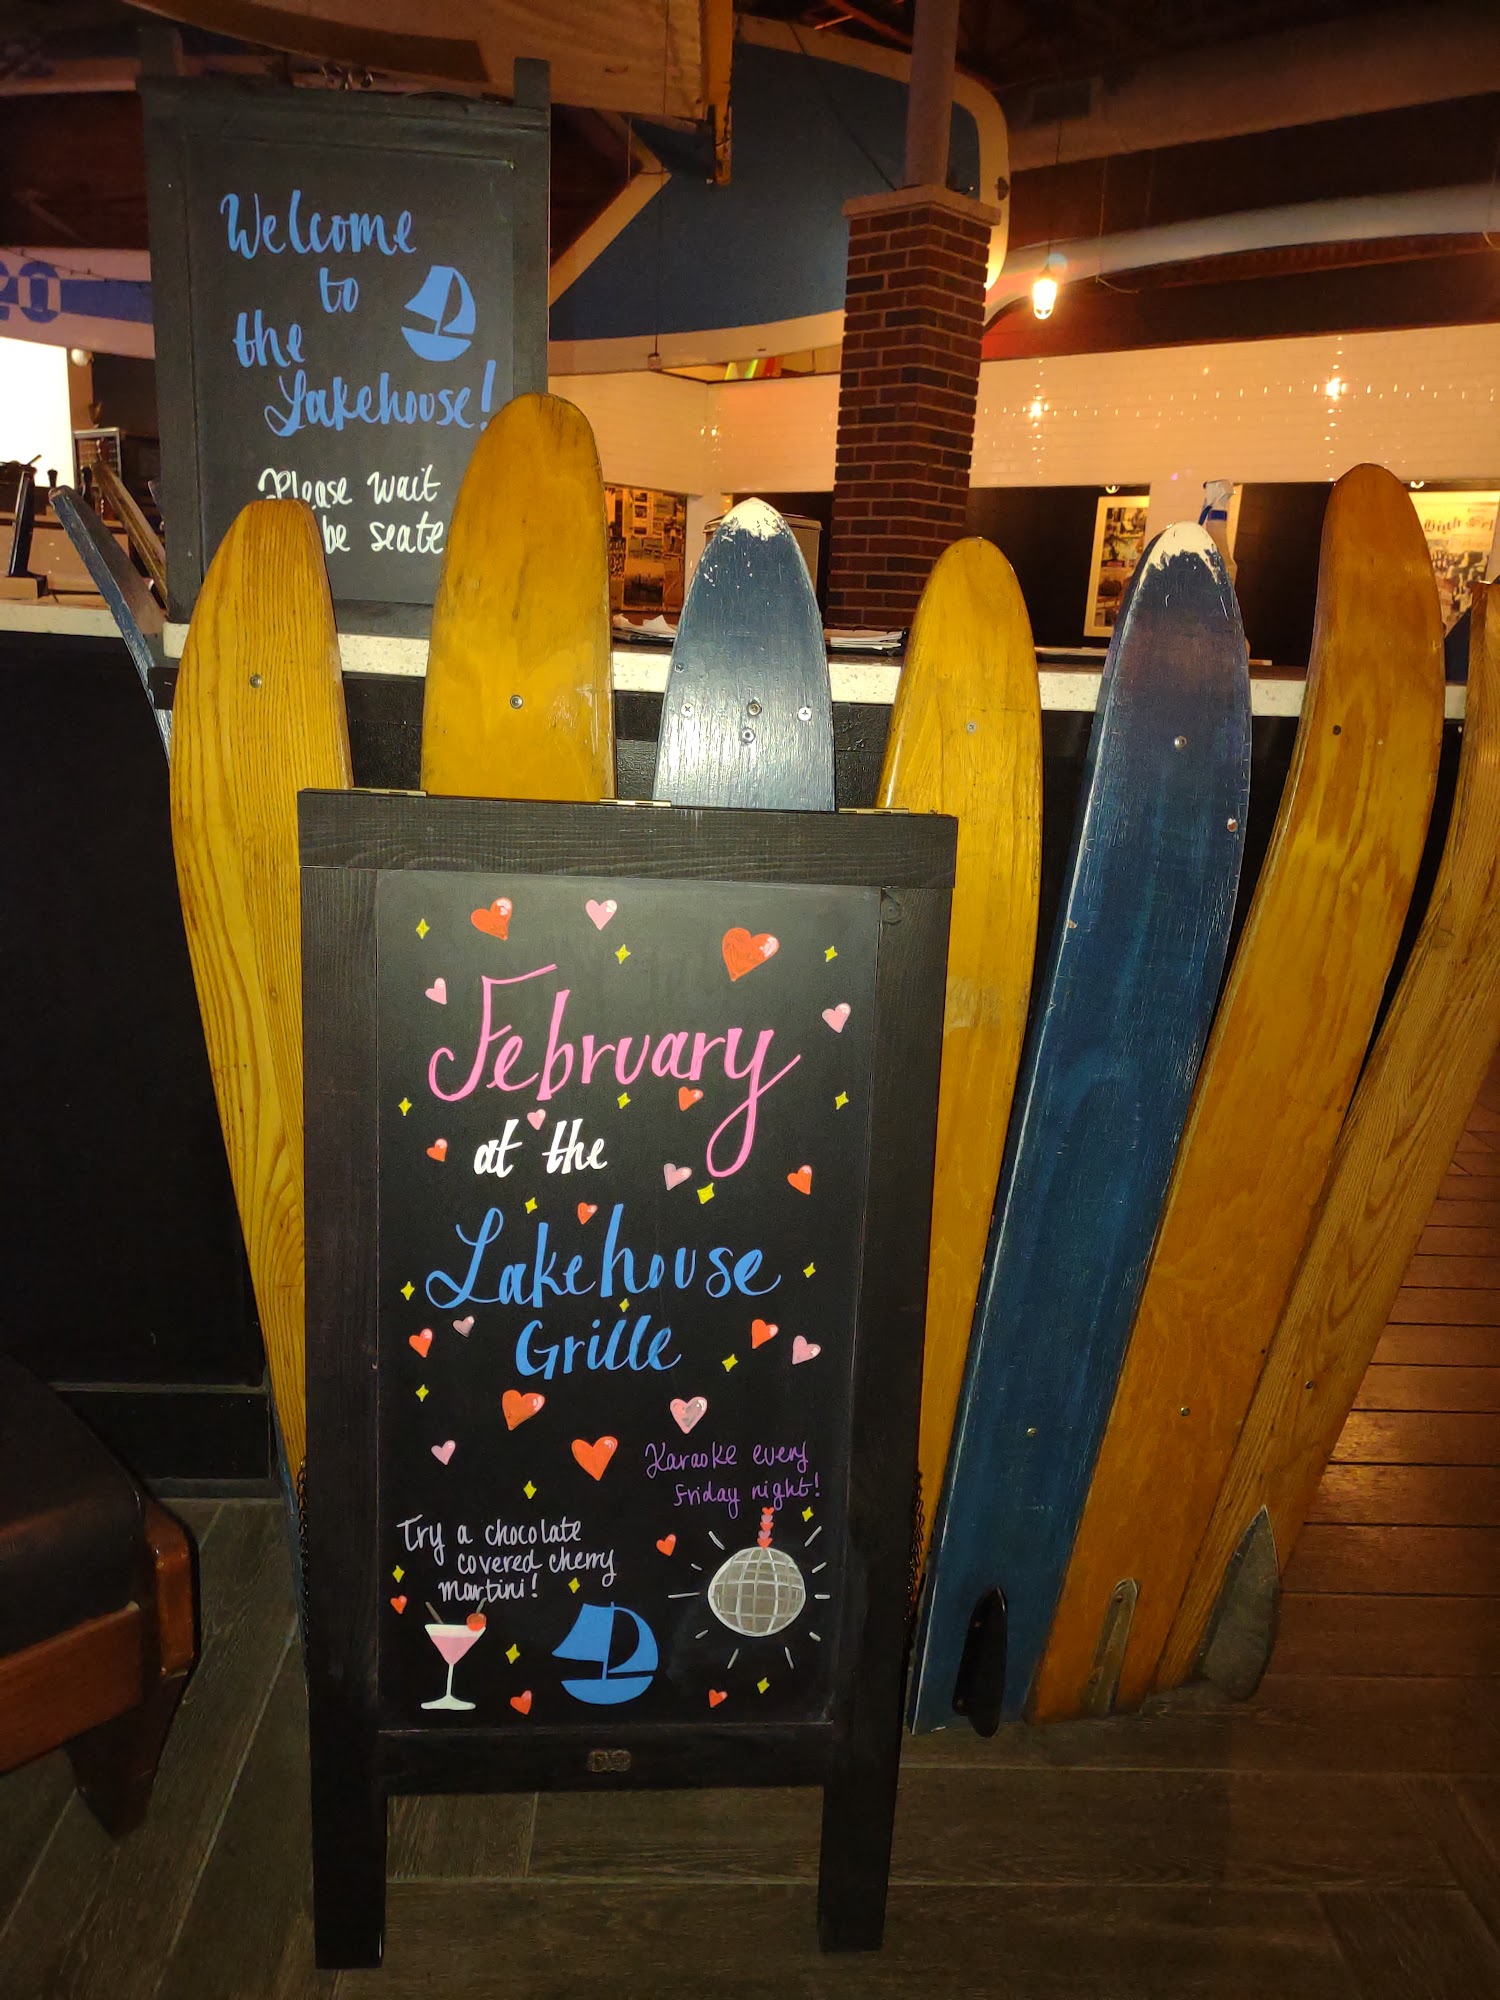 Welcome
to
the
Lakehouse!
Please wait
be seate
20
February
at the
Lakehouse
Grille
Karaoke every
Friday night!
Try a chocolate
covered cherry
martini!